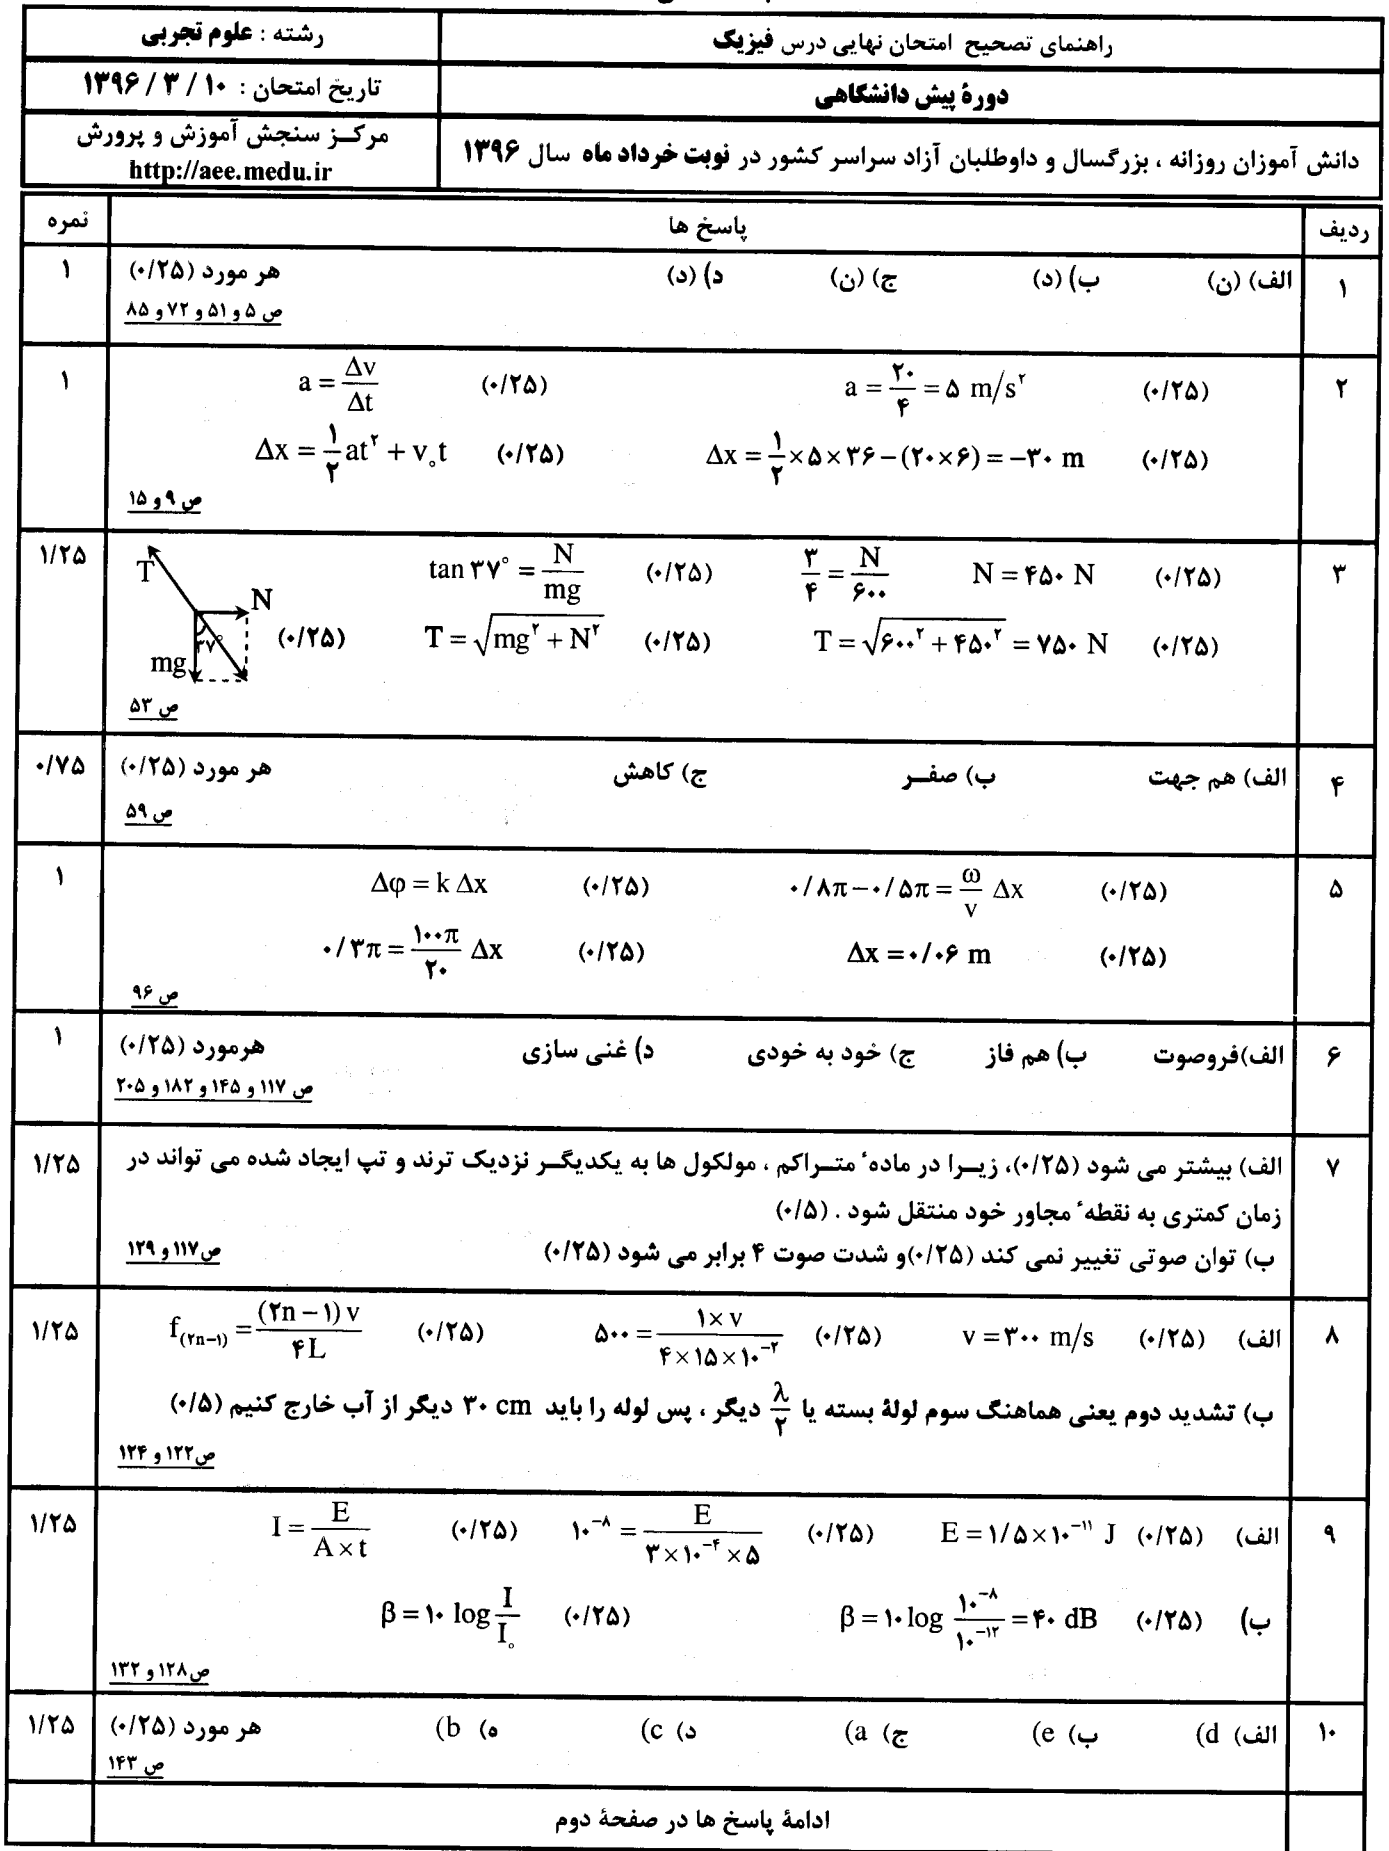 راهنمای تصحیح امتحان نهایی درس فیزیک
رشته : علوم تجربی
دورهٔ پیش دانشگاهی
تاریخ امتحان : ۱۰ / ۳ / ۱۳۹۶
دانش آموزان روزانه ، بزرگسال و داوطلبان آزاد سراسر کشور در نوبت خرداد ماه سال ۱۳۹۶
مرکــز سنجش آموزش و پرورش
http://aee.medu.ir
ردیف پاسخ ها نمره
۱ الف) (ن) ب) (د) ج) (ن) د) (د) هر مورد (۰/۲۵) ۱
ص ۵ و ۵۱ و ۷۲ و ۸۵
۲ a = Δv/Δt (۰/۲۵) a = ۲۰/۴ = ۵ m/s^۲ (۰/۲۵) ۱
Δx = ۱/۲ at^۲ + v₀t (۰/۲۵) Δx = ۱/۲ × ۵ × ۳۶ − (۲۰×۶) = −۳۰ m (۰/۲۵)
ص ۹ و ۱۵
۳ tan ۳۷° = N/mg (۰/۲۵) ۳/۴ = N/۶۰۰ N = ۴۵۰ N (۰/۲۵) ۱/۲۵
T N ۳۷° mg (۰/۲۵) T = √(mg^۲ + N^۲) (۰/۲۵) T = √(۶۰۰^۲ + ۴۵۰^۲) = ۷۵۰ N (۰/۲۵)
ص ۵۳
۴ الف) هم جهت ب) صفــر ج) کاهش هر مورد (۰/۲۵) ۰/۷۵
ص ۵۹
۵ Δφ = k Δx (۰/۲۵) ۰/۸π − ۰/۵π = ω/v Δx (۰/۲۵) ۱
۰/۳π = ۱۰۰π/۲۰ Δx (۰/۲۵) Δx = ۰/۰۶ m (۰/۲۵)
ص ۹۶
۶ الف)فروصوت ب) هم فاز ج) خود به خودی د) غنی سازی هرمورد (۰/۲۵) ۱
ص ۱۱۷ و ۱۴۵ و ۱۸۲ و ۲۰۵
۷ الف) بیشتر می شود (۰/۲۵)، زیــرا در مادهٔ متــراکم ، مولکول ها به یکدیگــر نزدیک ترند و تپ ایجاد شده می تواند در ۱/۲۵
زمان کمتری به نقطهٔ مجاور خود منتقل شود . (۰/۵)
ب) توان صوتی تغییر نمی کند (۰/۲۵)و شدت صوت ۴ برابر می شود (۰/۲۵) ص۱۱۷ و ۱۲۹
۸ الف) f_(۲n−۱) = (۲n − ۱) v/۴L (۰/۲۵) ۵۰۰ = ۱× v/۴×۱۵×۱۰^−۲ (۰/۲۵) v = ۳۰۰ m/s (۰/۲۵) ۱/۲۵
ب) تشدید دوم یعنی هماهنگ سوم لولهٔ بسته یا λ/۲ دیگر ، پس لوله را باید ۳۰ cm دیگر از آب خارج کنیم (۰/۵)
ص۱۲۲ و ۱۲۴
۹ الف) I = E/A×t (۰/۲۵) ۱۰^−۸ = E/۳×۱۰^−۴×۵ (۰/۲۵) E = ۱/۵×۱۰^−۱۱ J (۰/۲۵) ۱/۲۵
ب) β = ۱۰ log I/I₀ (۰/۲۵) β = ۱۰ log ۱۰^−۸/۱۰^−۱۲ = ۴۰ dB (۰/۲۵)
ص۱۲۸ و ۱۳۲
۱۰ الف) d) ب) e) ج) a) د) c) ه) b) هر مورد (۰/۲۵) ۱/۲۵
ص ۱۴۳
ادامهٔ پاسخ ها در صفحهٔ دوم